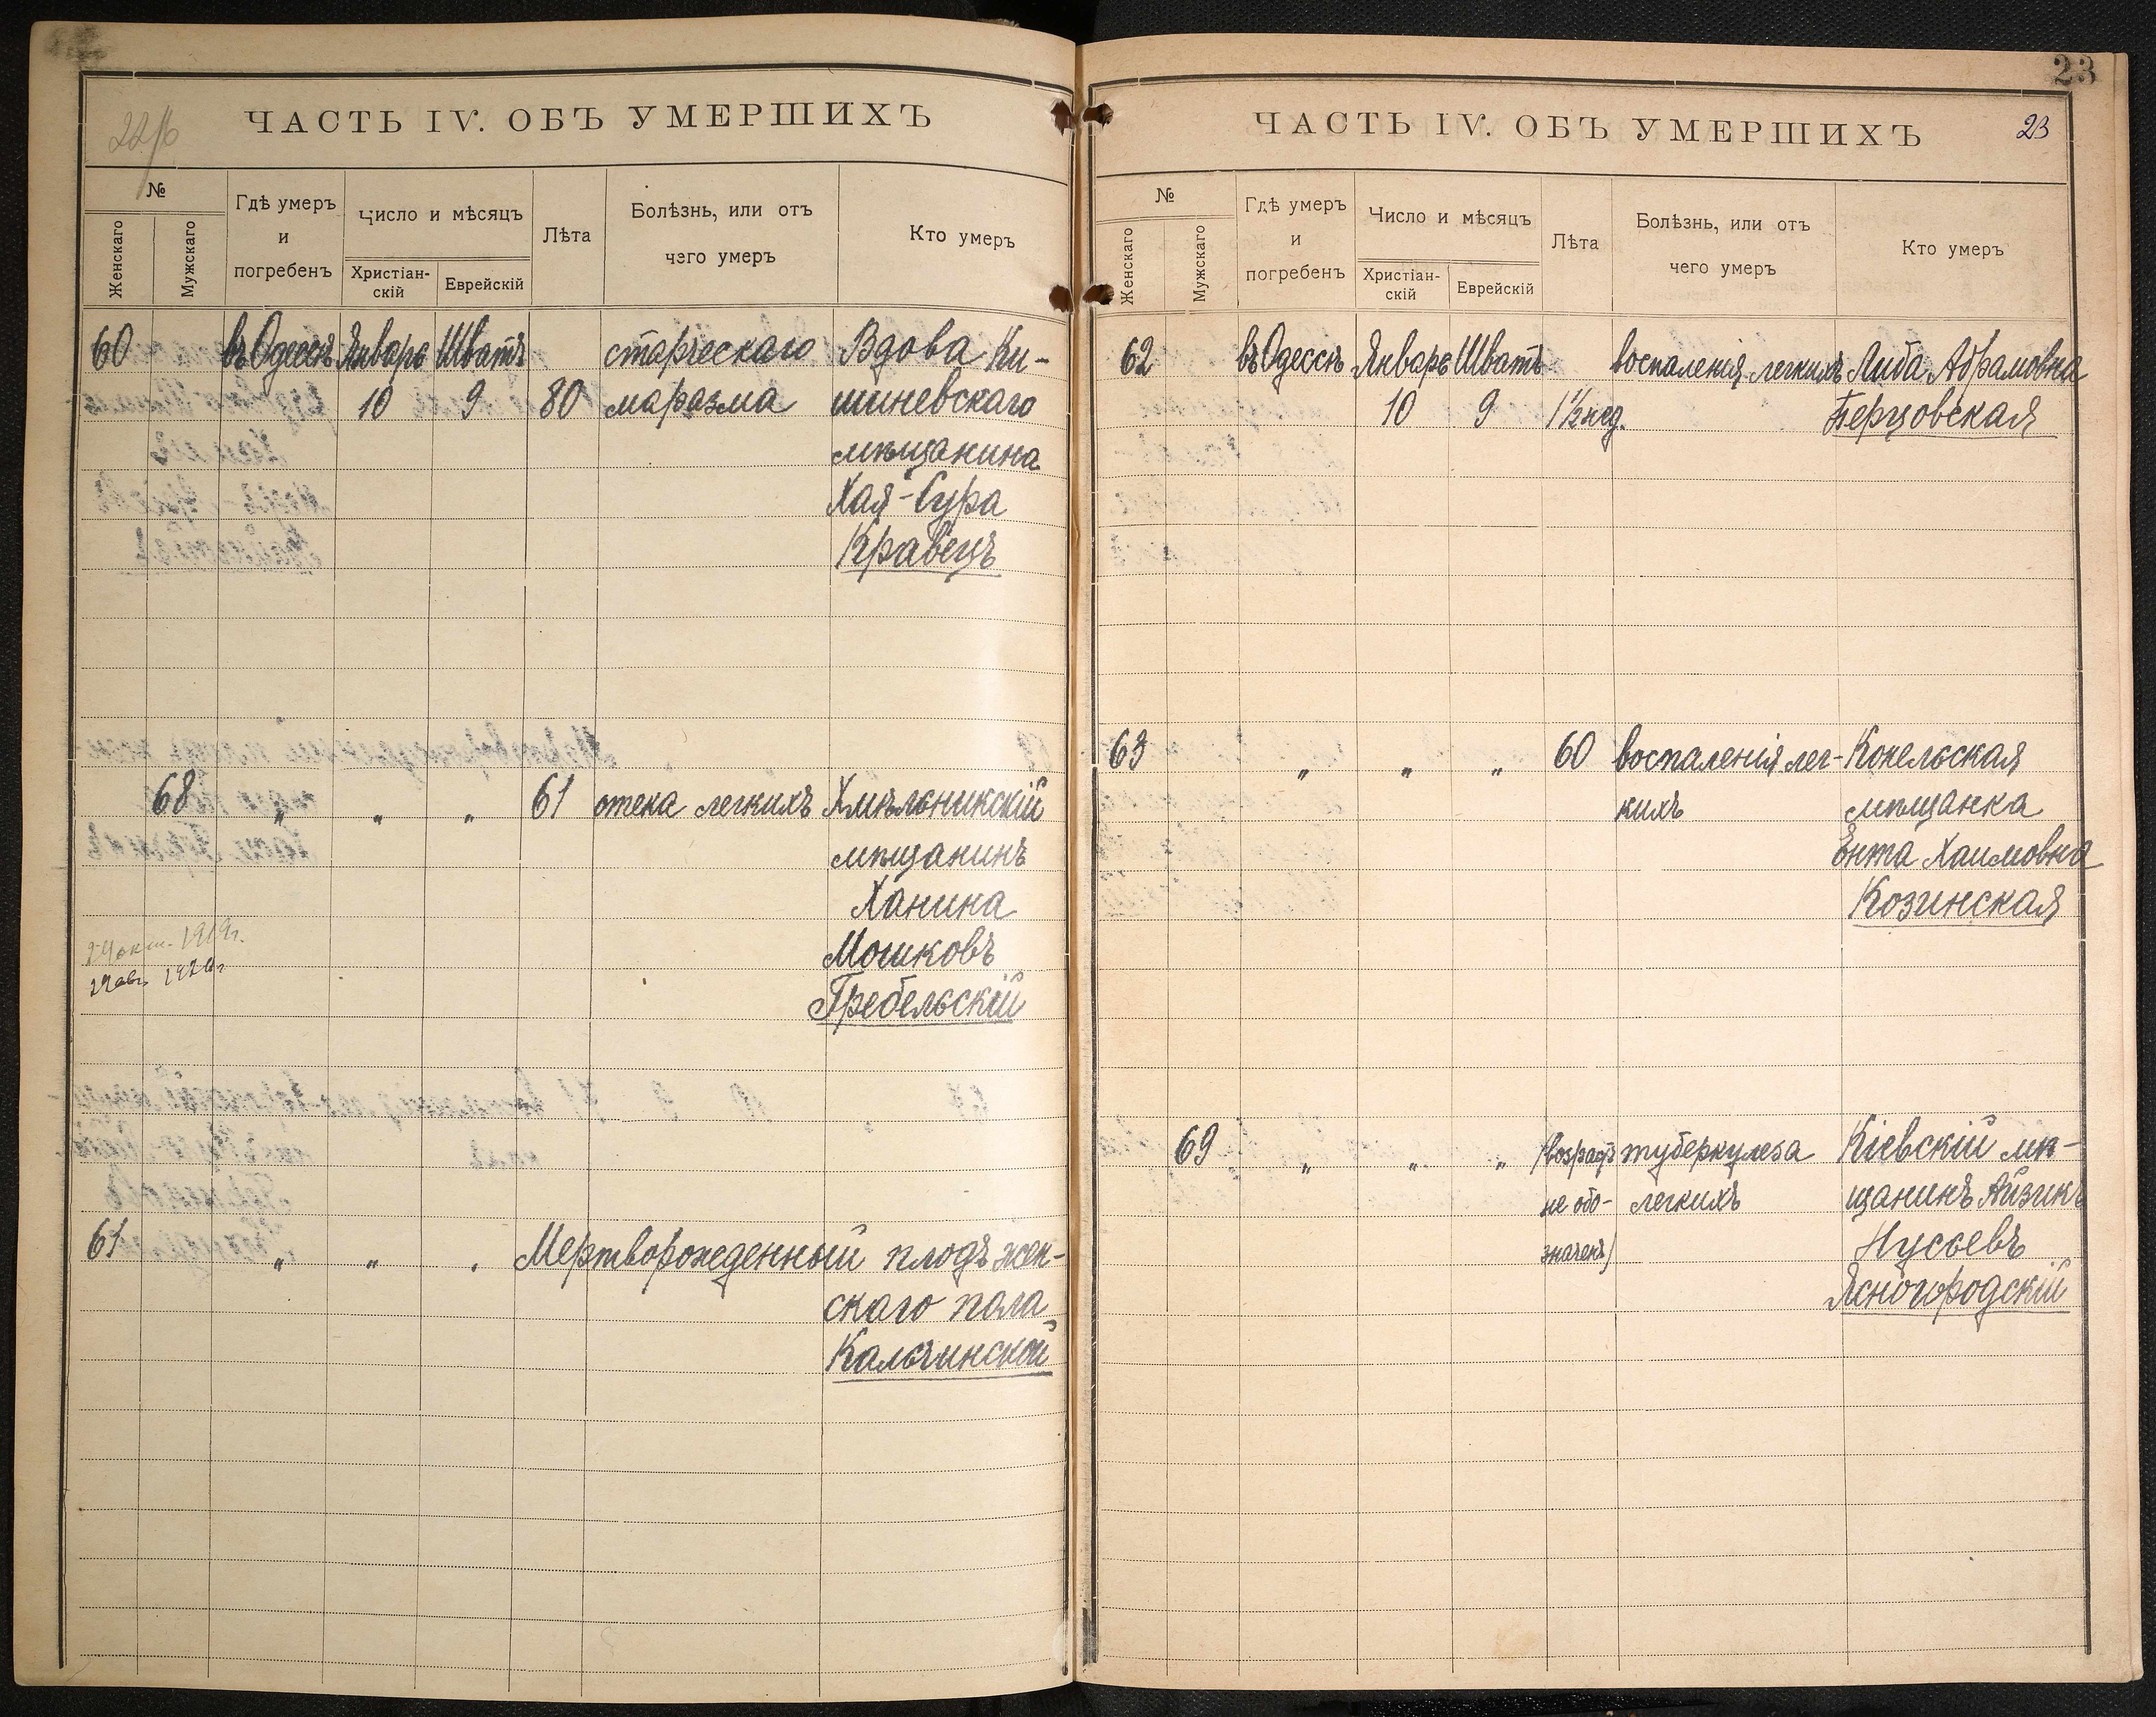 22/б
ЧАСТЬ IV. ОБЪ УМЕРШИХЪ
№
Женскаго
Мужскаго
Гдѣ умеръ и погребенъ
Число и мѣсяцъ
Христіан-скій
Еврейскій
Лѣта
Болѣзнь, или отъ чего умеръ
Кто умеръ
60 въ Одессѣ Январь Шватъ старческаго Вдова Ки-
10 9 80 маразма шиневскаго
мѣщанина
Хая-Сура
Кравецъ
68 " " " 61 отека легкихъ Хмѣльникскій
мѣщанинъ
Ханина
Мошковъ
Гребельскій
24 окт. 1919г.
1920г
61 " " " Мертворожденный плодъ жен-
скаго пола
Кальчинской
23
ЧАСТЬ IV. ОБЪ УМЕРШИХЪ
23
№
Женскаго
Мужскаго
Гдѣ умеръ и погребенъ
Число и мѣсяцъ
Христіан-скій
Еврейскій
Лѣта
Болѣзнь, или отъ чего умеръ
Кто умеръ
62 въ Одессѣ Январь Шватъ воспаленія легкихъ Либа Абрамовна
10 9 1½ нед. Берцовская
63 " " " 60 воспаленія лег- Конельская
кихъ мѣщанка
Ента Хаимовна
Козинская
69 " " " /возрастъ туберкулеза Кіевскій мѣ-
не обо- легкихъ щанинъ Айзикъ
значенъ/ Нусьевъ
Ясногородскій